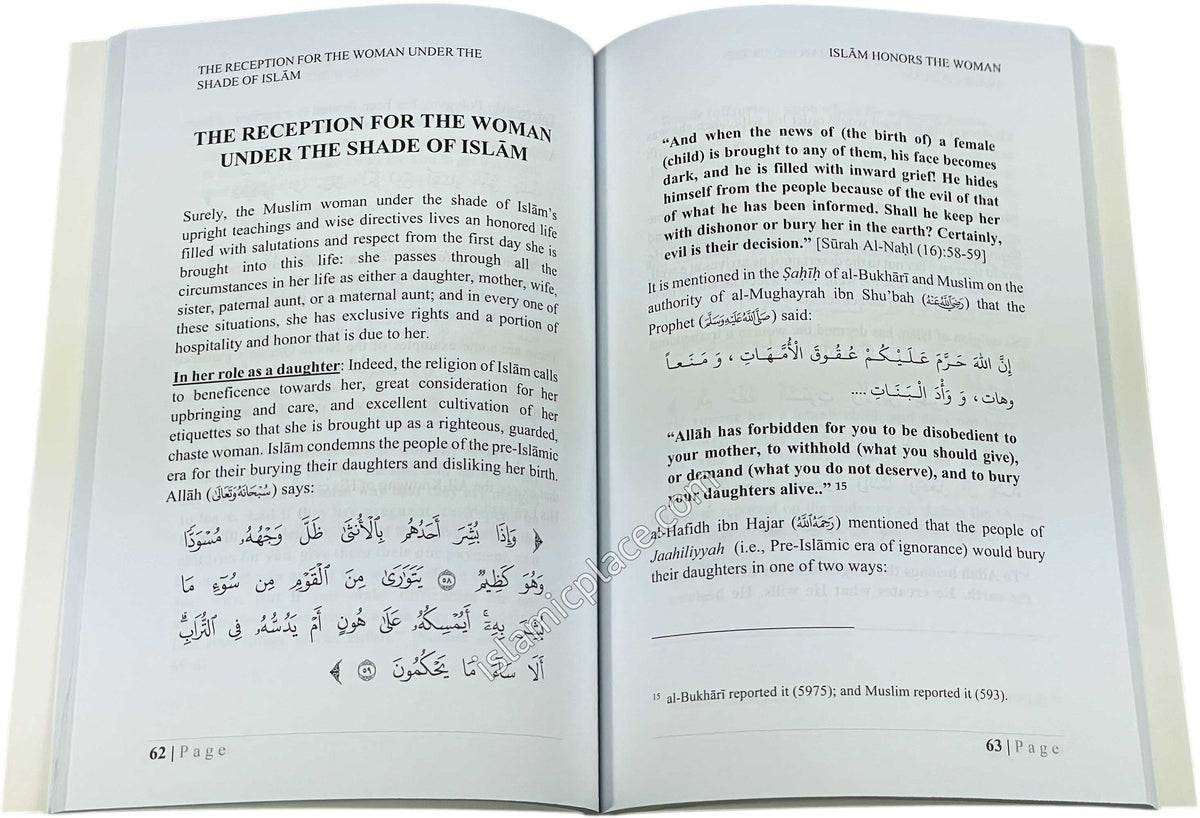 THE RECEPTION FOR THE WOMAN UNDER THE
SHADE OF ISLĀM
THE RECEPTION FOR THE WOMAN
UNDER THE SHADE OF ISLĀM
Surely, the Muslim woman under the shade of Islām's
upright teachings and wise directives lives an honored life
filled with salutations and respect from the first day she is
brought into this life: she passes through all the
circumstances in her life as either a daughter, mother, wife,
sister, paternal aunt, or a maternal aunt; and in every one of
these situations, she has exclusive rights and a portion of
hospitality and honor that is due to her.
In her role as a daughter: Indeed, the religion of Islām calls
to beneficence towards her, great consideration for her
upbringing and care, and excellent cultivation of her
etiquettes so that she is brought up as a righteous, guarded,
chaste woman. Islām condemns the people of the pre-Islāmic
era for their burying their daughters and disliking her birth.
Allāh (سُبْحَانَهُ وَتَعَالَىٰ) says:
﴿ وَإِذَا بُشِّرَ أَحَدُهُم بِٱلْأُنثَىٰ ظَلَّ وَجْهُهُۥ مُسْوَدًّا
وَهُوَ كَظِيمٌ ٥٨ يَتَوَٰرَىٰ مِنَ ٱلْقَوْمِ مِن سُوٓءِ مَا
بُشِّرَ بِهِۦٓ ۚ أَيُمْسِكُهُۥ عَلَىٰ هُونٍ أَمْ يَدُسُّهُۥ فِى ٱلتُّرَابِ ۗ
أَلَا سَآءَ مَا يَحْكُمُونَ ٥٩ ﴾
62 | Page
ISLĀM HONORS THE WOMAN
“And when the news of (the birth of) a female
(child) is brought to any of them, his face becomes
dark, and he is filled with inward grief! He hides
himself from the people because of the evil of that
of what he has been informed. Shall he keep her
with dishonor or bury her in the earth? Certainly,
evil is their decision.” [Sūrah Al-Naḥl (16):58-59]
It is mentioned in the Ṣaḥīḥ of al-Bukhārī and Muslim on the
authority of al-Mughayrah ibn Shu'bah (رَضِيَ اللَّهُ عَنْهُ) that the
Prophet (صَلَّى اللَّهُ عَلَيْهِ وَسَلَّمَ) said:
إِنَّ اللهَ حَرَّمَ عَلَيْكُمْ عُقُوقَ الْأُمَّهَاتِ ، وَ مَنَعاً
وهات ، وَ وَأْدَ الْبَنَاتِ ....
“Allāh has forbidden for you to be disobedient to
your mother, to withhold (what you should give),
or demand (what you do not deserve), and to bury
your daughters alive..” 15
al-Hafidh ibn Hajar (رَحِمَهُ اللَّهُ) mentioned that the people of
Jaahiliyyah (i.e., Pre-Islāmic era of ignorance) would bury
their daughters in one of two ways:
15 al-Bukhārī reported it (5975); and Muslim reported it (593).
63 | Page
islamicplace.com